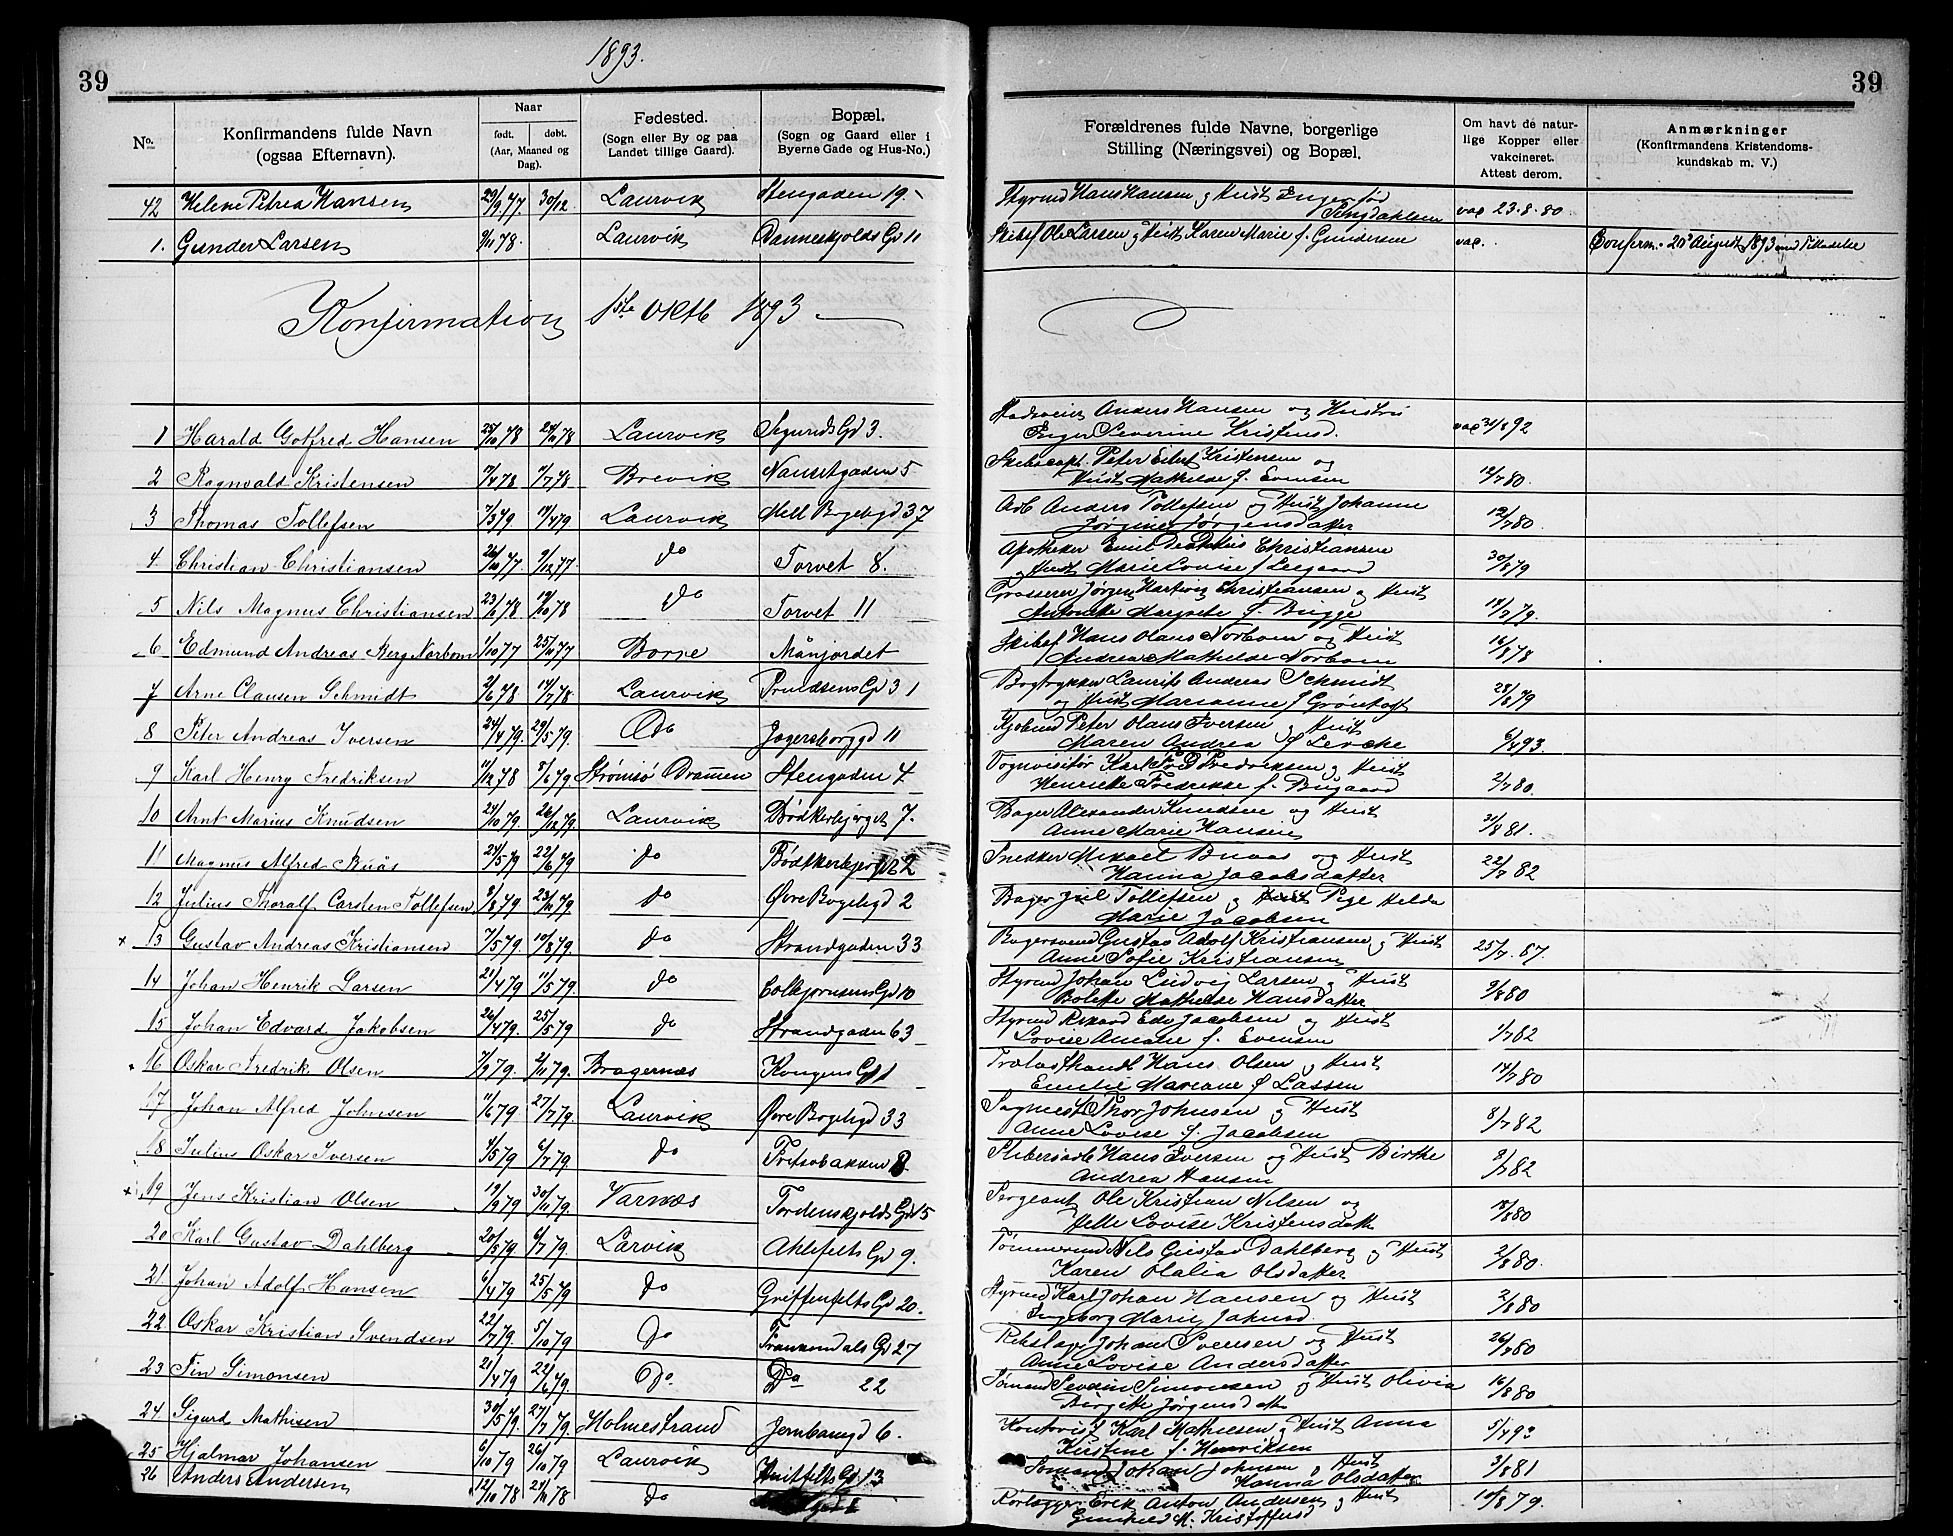 39
1893.
39
No.
Konfirmandens fulde Navn
(ogsaa Efternavn).
Naar
født.
døbt.
(Aar, Maaned og
Dag).
Fødested.
(Sogn eller By og paa
Landet tillige Gaard).
Bopæl.
(Sogn og Gaard eller i
Byerne Gade og Hus-No.)
Forældrenes fulde Navne, borgerlige
Stilling (Næringsvei) og Bopæl.
Om havt de natur-
lige Kopper eller
vakcineret.
Attest derom.
Anmærkninger
(Konfirmandens Kristendoms-
kundskab m. V.)
42 Helene Petrea Hansen 29/9 77. 30/12 Laurvik Stengaden 19. Styrmd Hans Hansen og Hust Inger vac 23.8.80
1. Gunder Larsen 9/11 78. Laurvik Danneskjolds Gd 11 Skibsf Ole Larsen og Hust Karen Marie f. Gundersen vac. Confirm. 20 August 1893 med Tilladelse
Konfirmation 1ste Oktb 1893
1 Harald Gotfred Hansen 25/10 78 24/11 78 Laurvik Sigurds Gd 3. Anders Hansen og Hustru
Inger Severine Kristensd. vac 31/8 92
2 Ragnvald Kristensen 7/4 78 Brevik Nansetgaden 5 Skibscapt. Peter Kristensen og
Hust Mathilde f. Evensen 12/7 80.
3 Thomas Tollefsen 7/3 79 Laurvik Mell Bøgeligd 37 Arb Anders Tollefsen og Hust Johanne
Jørgine Jørgensdatter 12/7 80.
4. Christian Christiansen 26/10 77 9/12 77. do Torvet 8. Apotheker Emil Christiansen
og Hust Marie Lovise f Leegaard 30/8 79
5 Nils Magnus Christiansen 78 78 do Torvet 11 Grosserer Jørgen Hartvig Christiansen og Hust
Antonette Margrete f. Brygge 14/7 79.
6 Edmund Andreas Berg Norbom 1/10 77 25/11 77 Borre Månjordet Skibsf Hans Olaus Norbom og Hust
Andrea Mathilde Norbom 16/8 78
7 Arne Clausen Schmidt 2/6 78 14/7 78. Laurvik Prindsens Gd 31 Bogtrykker Laurits Andreas Schmidt
og Hust Marianne f Grøntoft 28/8 79
8 Peter Andreas Iversen 24/4 79. 29/5 79. Do Jegersborggd 11 Peter Olaus Iversen og Hust
Maren Andrea f Lercke 6/4 93.
9 Karl Henry Fredriksen 11/12 78 8/6 79. Strømsø Drammen Stengaden 4 Togvisitør Karl Fredriksen og Hust
Henriette Fredrikke f. Bugaard 2/7 80.
10 Arnt Marius Knudsen 24/10 79. 26/12 79. Laurvik Bødkerbjerget 7. Bager Alexander Knudsen og Hust
Anne Marie Hansen 31/8 81.
11 Magnus Alfred Buås 24/5 79 22/6 79 do Bødtkerbjerget 22 Snedker Mikael Buaas og Hust
Hanna Jacobsdatter 22/7 82
12 Julius Thoralf Carsten Tollefsen 8/8 79. 23/11 79. do Øvre Bøgeligd 2 Bager Juel Tollefsen og Pige Helda
Marie Jacobsen
x 13 Gustav Andreas Kristiansen 7/5 79. 10/8 79. do Strandgaden 33 Bagersvend Gustav Adolf Kristiansen og Hust
Anne Sofie Kristiansen 25/7. 87.
14 Johan Henrik Larsen 21/4 79 11/5 79. do Colbjørnsens Gd 10 Styrmd Johan Ludvig Larsen og Hust
Bolette Mathilde Hansdatter 9/8 80
15 Johan Edvard Jakobsen 26/4 79. 25/5 79 do Strandgaden 63 Styrmd Rikard Edv Jacobsen og Hust
Lovise Amalie f. Evensen 1/7 82
16 Oskar Fredrik Olsen 7/9 79. 2/11 79. Bragernæs Kongens Gd 1 Trælasthandl Hans Olsen og Hust
Emilie Mariane f Lassen 14/7 80
17 Johan Alfred Johnsen 11/6 79. 27/7 79 Laurvik Øvre Bøgeligd 33 Sagmest Thor Johnsen og Hust
Anne Lovise f. Jacobsen 8/7 82
18 Julius Oskar Iversen 4/5 79 6/7 79. do Tretsobakken 8. Hans Iversen og Hust Birthe
Andrea Hansen 8/7 82
x 19 Jens Kristian Olsen 19/9 79 30/11 79. Varnæs Tordenskjolds Gd 15 Sergeant Ole Kristian Nilsen og
Helle Lovise Kristensdatt 80
20 Karl Gustav Dahlberg 20/5 79 6/7 79. Larvik Ahlefelts Gd 9. Tømmermd Nils Gustav Dahlberg og Hust
Karen Olalia Olsdatter 2/8 80.
21 Johan Adolf Hansen 6/4 79 25/5 79 do Griffenfelts Gd 20. Styrmd Karl Johan Hansen og Hust
Ingeborg Marie 2/8 80
22 Oskar Kristian Svendsen 22/7 79. 5/10 79 Do Frankendals Gd 27 Rebslager Johan Svensen og Hust
Anne Lovise Andersdatter 26/7 80
23 Fin Simonsen 21/4 79 22/6 79. Do. Do 22 Sømand Severin Simonsen og Hust Olivia
Birgitte Jørgensdatt 16/8 80
24 Sigurd Mathisen 30/5 79. 27/7 79. Holmestrand Jernbanegd 6. Kontorist Karl Mathiesen og Hust Anna
Kirstine f. Henriksen 5/4 93
25 Hjalmar Johansen 6/10 79 26/10 79 Laurvik Huitfelts Gd 13 Sømand Johan Johnsen og Hust
Hanna Olsdatter 3/8 81
26 Anders Andersen 12/10 78 24/11 78 do Rorlogger Erik Anton Andersen og Hust
Gunhild M. Kristoffersd 10/8 79.